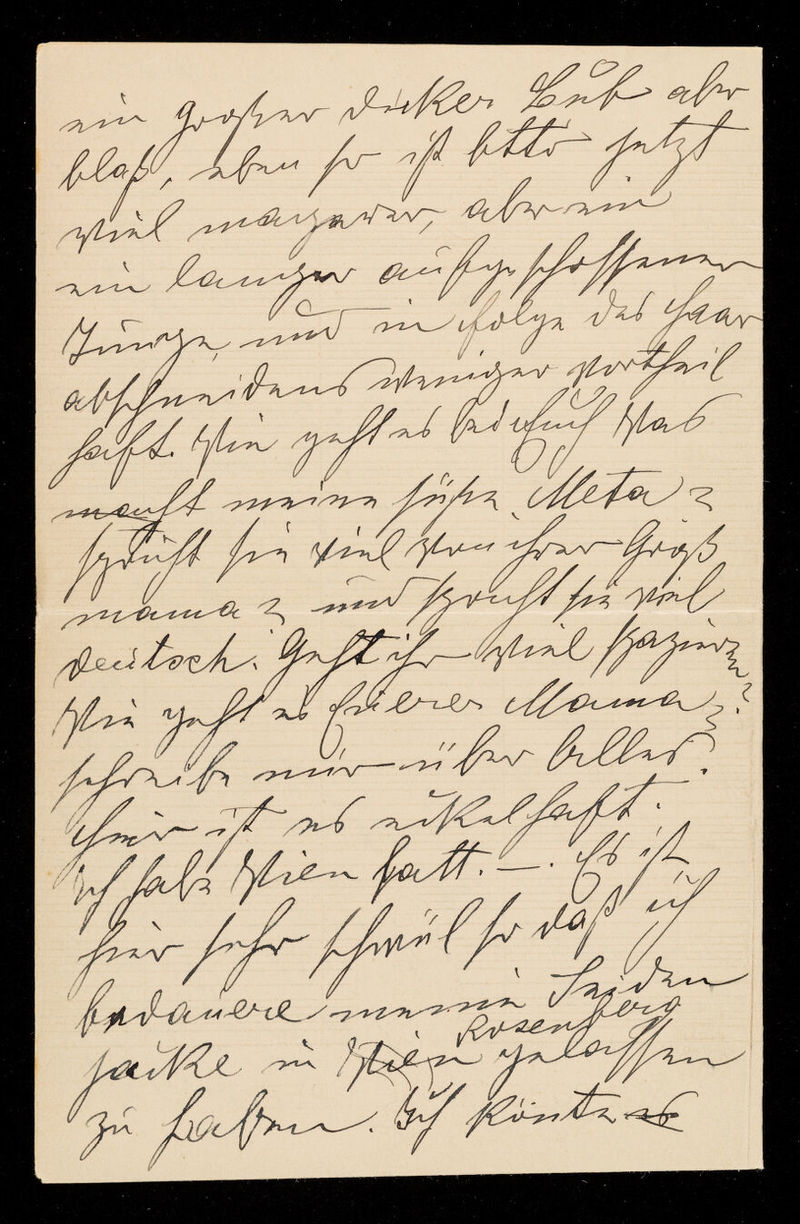 ein großer dicker Bub aber
blaß, eben so ist Otto jetzt
viel magerer, aber ein
ein langer aufgeschossener
Junge, und in folge des Haar
abschneidens weniger vortheil
haft. Wie geht es bei Euch Was
macht meine süße Meta?
spricht sie viel von ihrer Groß
mama? und spricht sie viel
deutsch. Geht ihr viel spazieren?
Wie geht es Euerer Mama?
schreibe mir über Alles.
Hier ist es ekelhaft.
Ich habe Wien satt. —. Es ist
hier sehr schwül so daß ich
bedauere meine Seiden
jacke in Wien Rosenberg gelassen
zu haben. Ich könte es